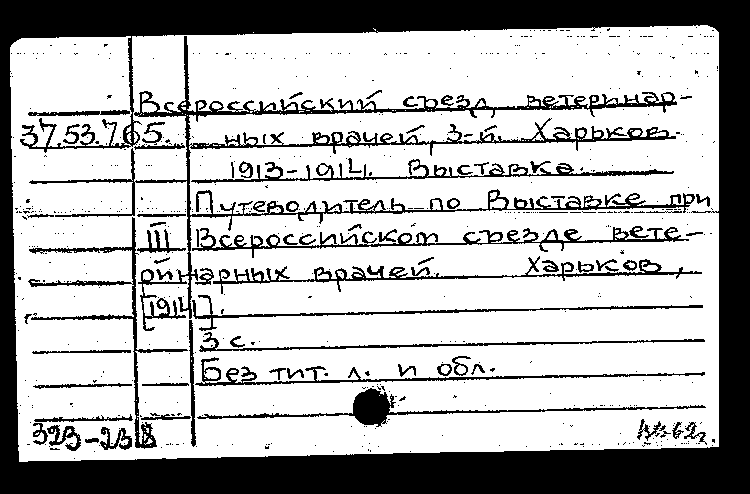 Всероссийский съезд ветеринар-
37.53.7.65. ных врачей, 3-й. Харьков.
1913-1914. Выставка.
Путеводитель по Выставке при
III Всероссийском съезде вете-
ринарных врачей. Харьков,
[1914].
3 с.
Без тит. л. и обл.
323-2318